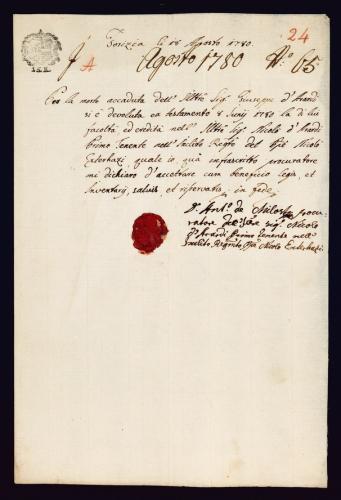 24
Gorizia li 18 Agosto 1780.
A Agosto 1780 N.º 65
Per la morte accaduta dell' Illtre Sig. Giuseppe d' Arardi
si è devoluta ex testamento 8 Junij 1780 la di lui
facoltà ed eredità nell' Illtre Sig. Nicolo d' Arardi
Primo Tenente nell' Inclito Regto del Nicolò
Esterhazi, quale io quà infrascritto procuratore
mi dichiaro d' accettare cum beneficio legis, et
Inventarij, salvis, et reservatis, in fede
Ant.º de procu-
ratore sig. Niccolo
d' Arardi Primo Tenente nell'
Inclito Regimto, Nicolo Esterhazi.